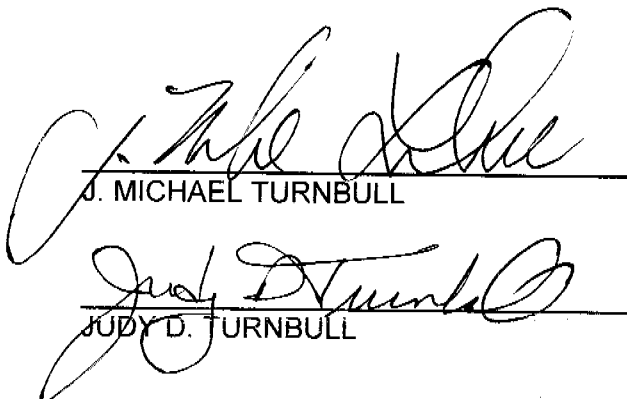 J. Mike
J. MICHAEL TURNBULL
Judy D Turnbull
JUDY D. TURNBULL